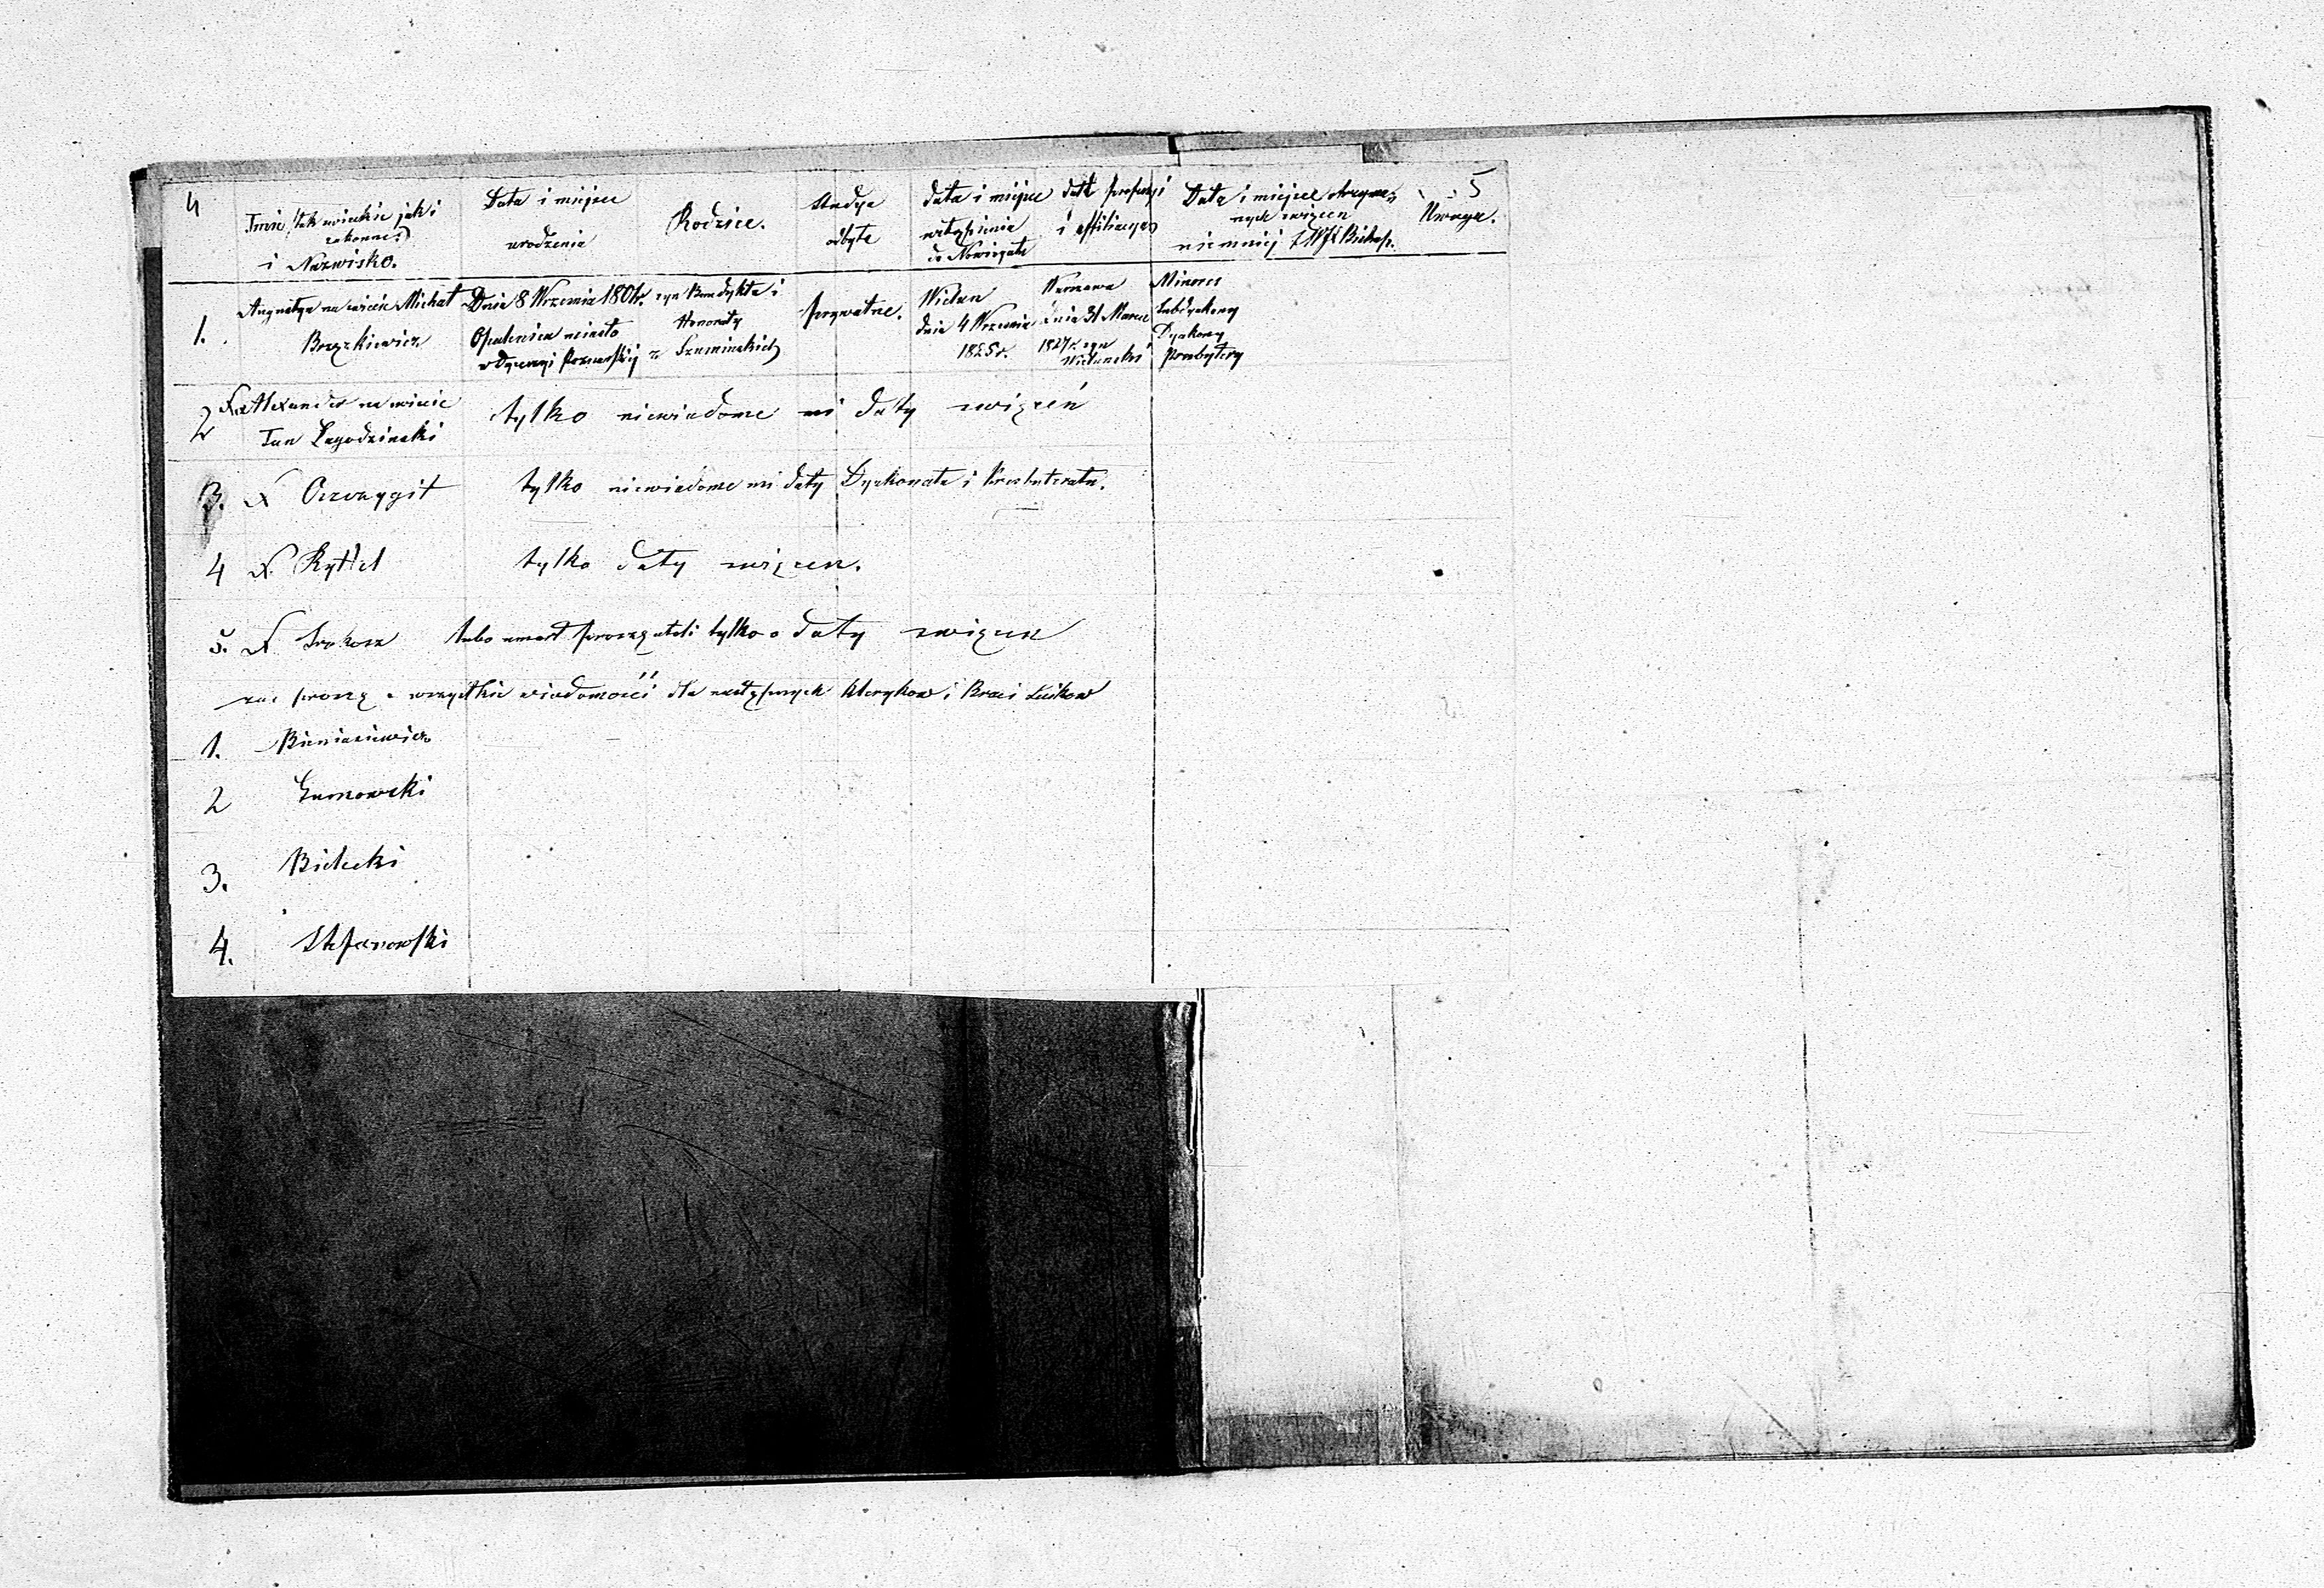 4
5
Imie (tak wieckie jak i zakonne)
i Nazwisko.
Data i miejsce
urodzenia
Rodzice.
Studya
odbyte
data i miejsce
wstąpienia
do Nowicyatu
data professyi
i affiliacyi
Data i miejsce otrzyma-
nych święceń
niemniej Bishop.
Uwaga.
1.
Augustyn na świecie Michał
Brzękiewicz
Dnia 8 Września 1801 r.
Opalenica miasto
w Dyecezyi Poznańskiej
syn Benedykta i
Honoraty
z Szumińskich
prywatne.
Wieluń
dnia 4 Września
1825 r.
Warszawa
dnia 31 Marca
1827 r. syn
Wieluński
Minores
Subdyakony
Dyakony
Presbytery
2 X Alexander na świecie
Jan Łagodziński
tylko niewiadome mi daty święceń
3. X Oczozygit
tylko niewiadome mi daty Dyakonatu i Presbiteratu.
4 X Ryttel
tylko daty święceń.
5. X Srokosz
lubo umarł proszę atoli tylko o daty święceń
zaś proszę o wszystkie wiadomości dla następnych Kleryków i Braci Laików
1. Bieniasiewicz
2
3. Bielecki
4. Stefanowski